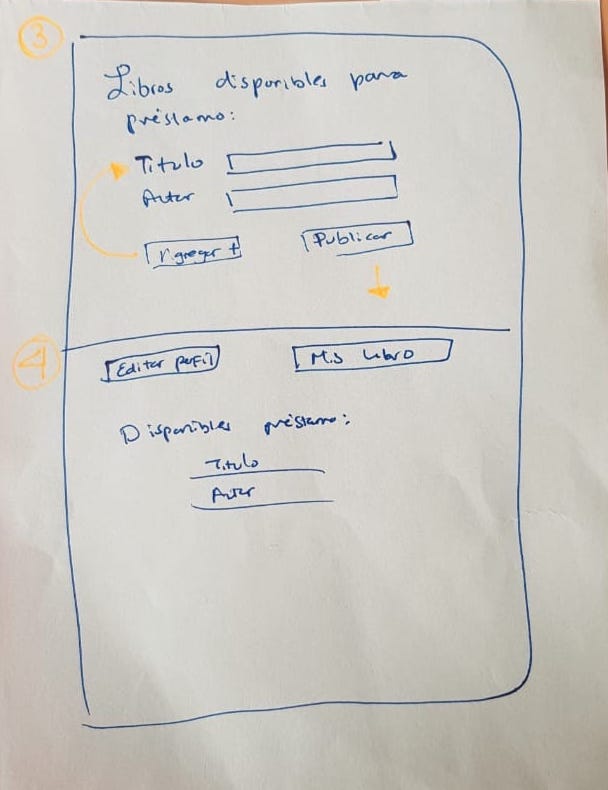 3
Libros disponibles para
préstamo:
Titulo
Autor
Agregar +
Publicar
4
Editar perfil
Mis Libro
Disponibles préstamo:
Titulo
Autor